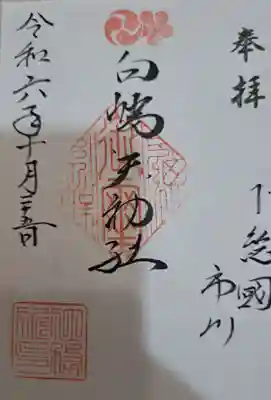 奉拝
下総國
市川
白幡天神社
令和六年十月